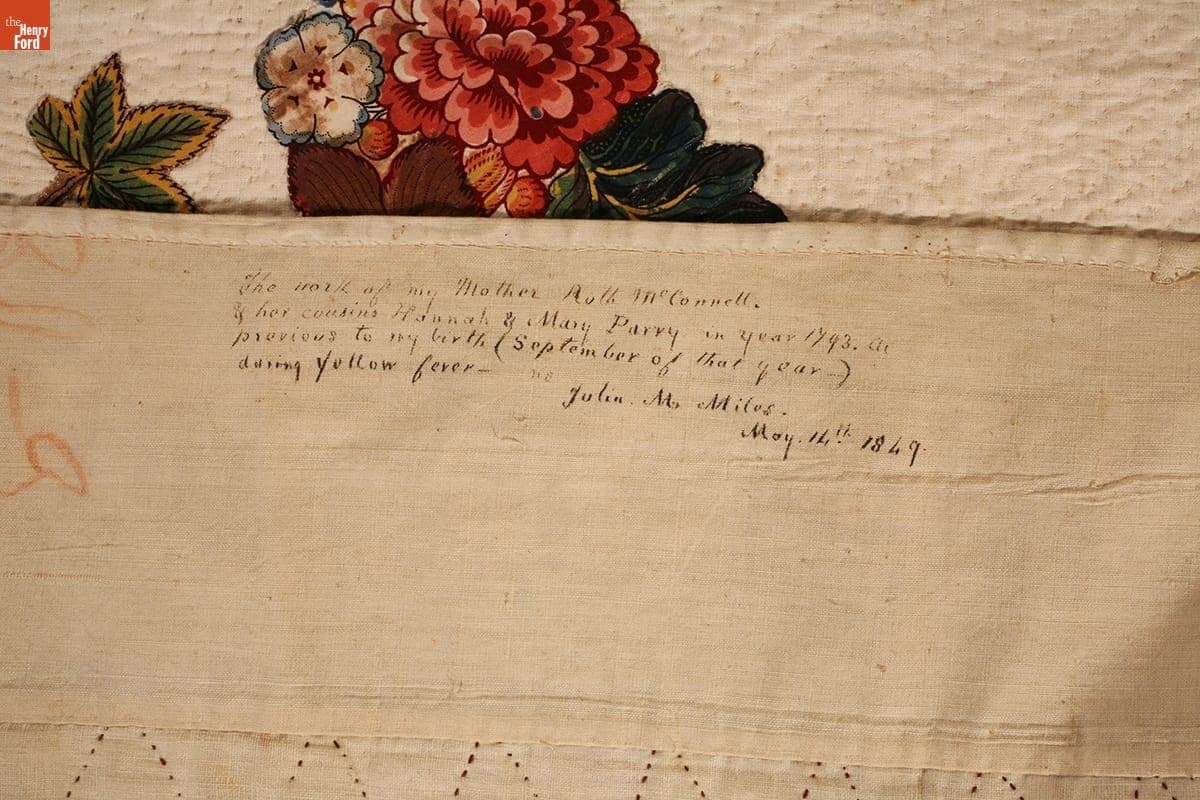 the
Henry
Ford
The work of my Mother Ruth McConnell.
& her cousins Hannah & Mary Parry in year 1793.
previous to my birth (September of that year—)
during yellow fever—
Julia. M. Miles.
May. 14th 1849.